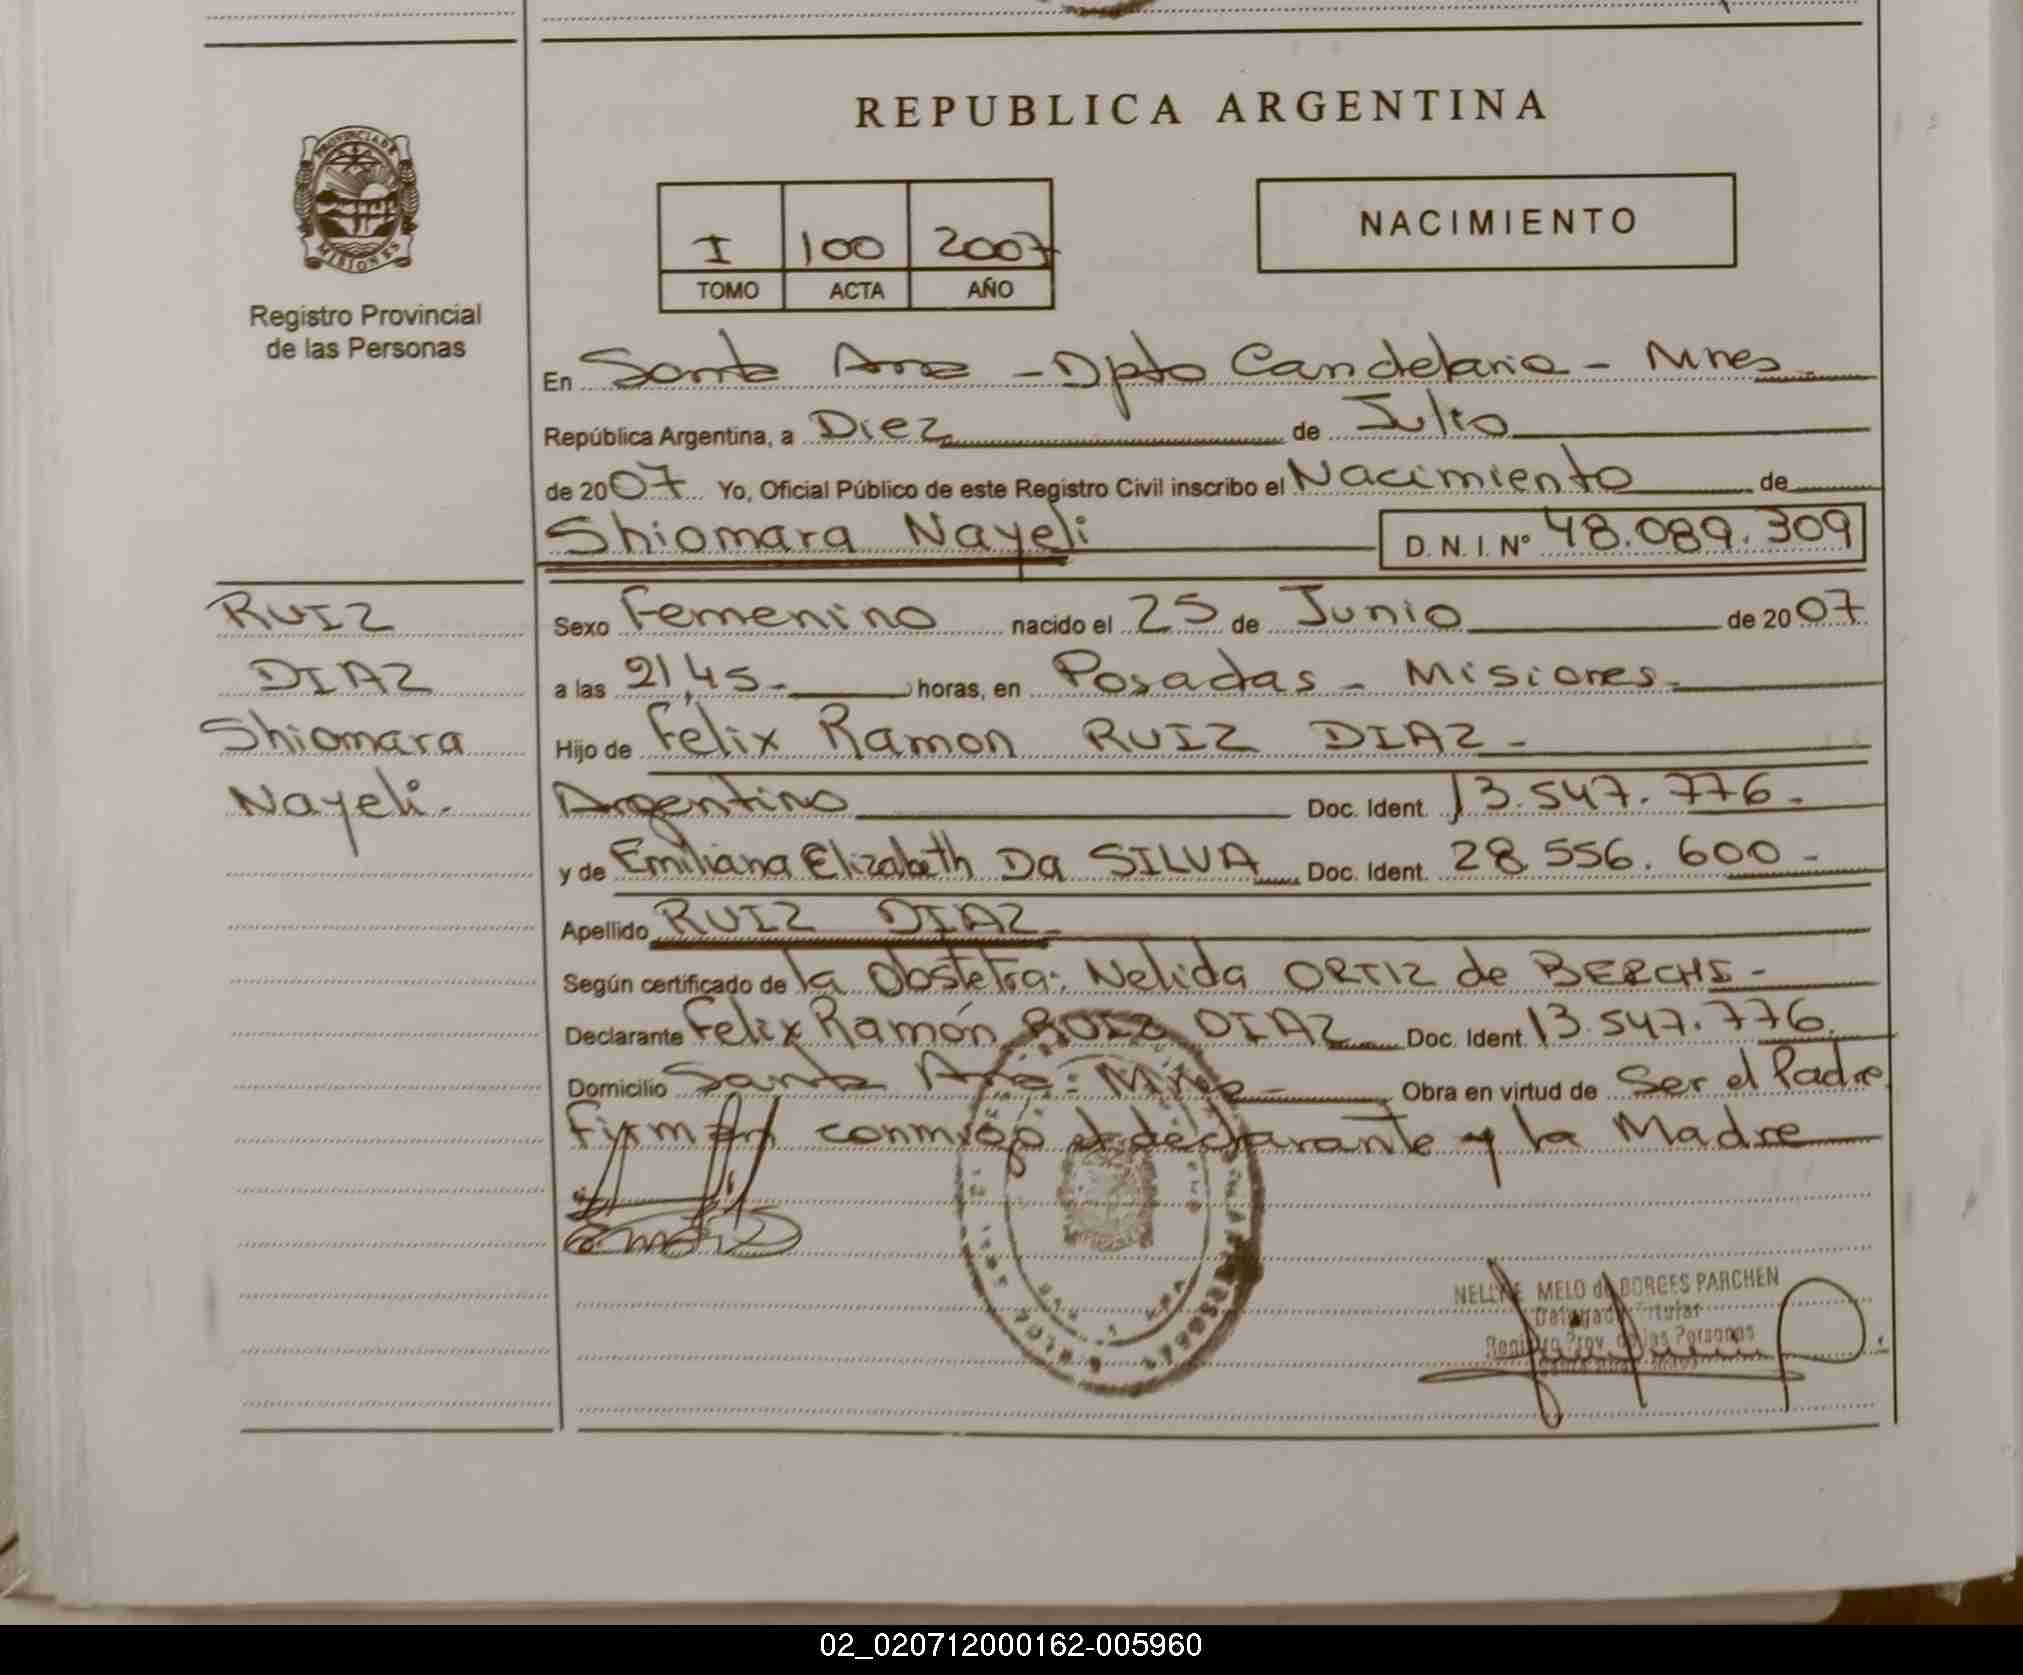 REPUBLICA ARGENTINA
PROVINCIA DE
MISIONES
Registro Provincial
de las Personas
I 100 2007
TOMO ACTA AÑO
NACIMIENTO
En Santa Ana - Dpto Candelaria - Mnes
República Argentina, a Diez de Julio
de 2007 Yo, Oficial Público de este Registro Civil inscribo el Nacimiento de
Shiomara Nayeli D. N. I. N° 48.089.309
RUIZ
DIAZ
Shiomara
Nayeli.
Sexo Femenino nacido el 25 de Junio de 2007
a las 21,45- horas, en Posadas - Misiones-
Hijo de Felix Ramon RUIZ DIAZ -
Argentino Doc. Ident. 13.547.776-
y de Emiliana Elizabeth Da SILVA Doc. Ident. 28.556.600-
Apellido RUIZ DIAZ-
Según certificado de la Obstetra: Nelida ORTIZ de BERCHI-
Declarante Felix Ramón RUIZ DIAZ Doc. Ident. 13.547.776.
Domicilio Santa Ana - Mnes - Obra en virtud de Ser el Padre
Firman conmigo el declarante y la Madre
NELLY MELO de BORGES PARCHEN
Delegada Titular
Registro Prov. de las Personas
02_020712000162-005960